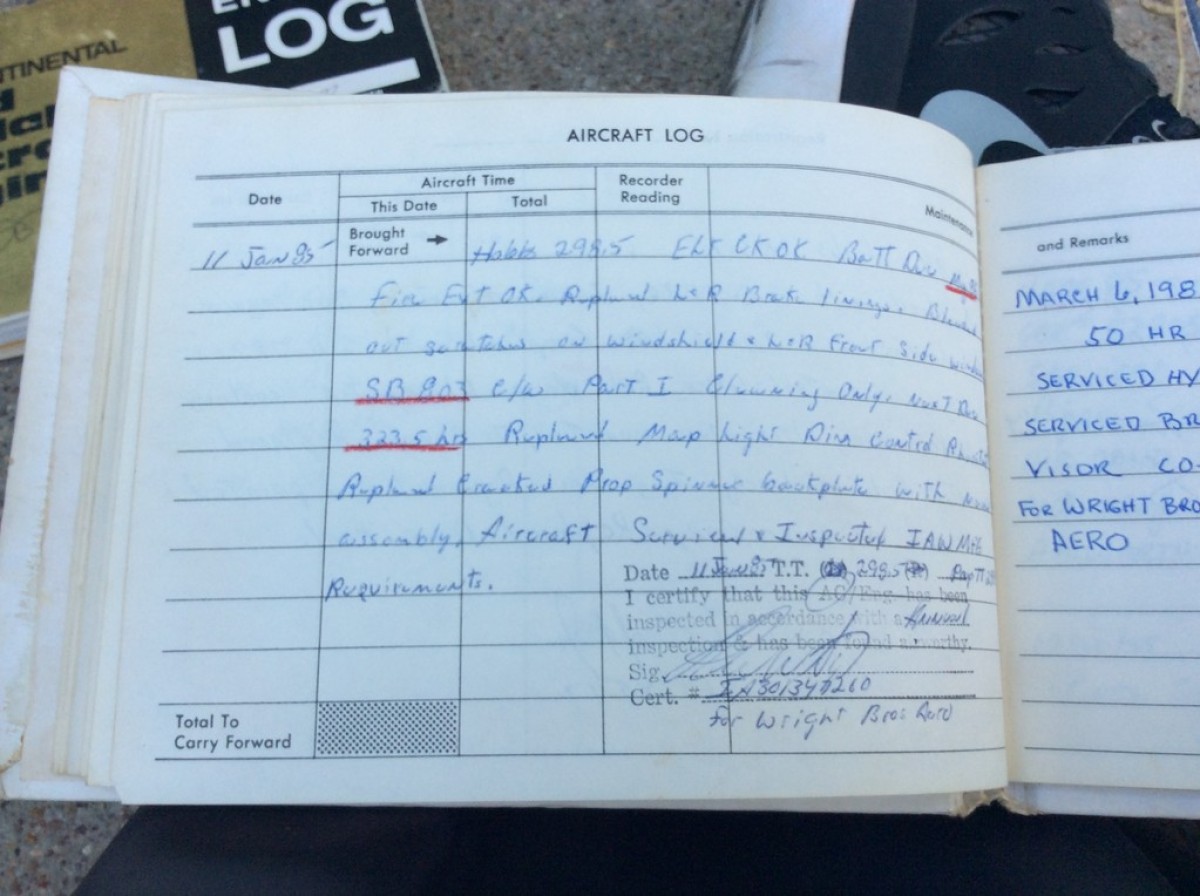 TINENTAL
LOG
AIRCRAFT LOG
Date
Aircraft Time
This Date
Total
Recorder Reading
Maintenance
11 Jan 85
Brought Forward
Hobbs 298.5 ELT CK OK Batt Due
Fire Ext OK. Replaced L&R Brake linings.
out scratches on windshield & L&R Front Side
SB 803 c/w Part I Cleaning Only, next Due
323.5 hr Replaced Map Light Dim Control
Replaced Cracked Prop Spinner backplate with
assembly. Aircraft Serviced & Inspected IAW
Requirements.
Date 11 Jan 85 T.T. 298.5
I certify that this AC/Eng. has been
inspected in accordance with a Annual
inspection & has been found airworthy.
Sig.
Cert. #
For Wright Bros Aero
Total To
Carry Forward
and Remarks
MARCH 6, 198
50 HR
SERVICED HY
SERVICED BR
VISOR CO
FOR WRIGHT BRO
AERO